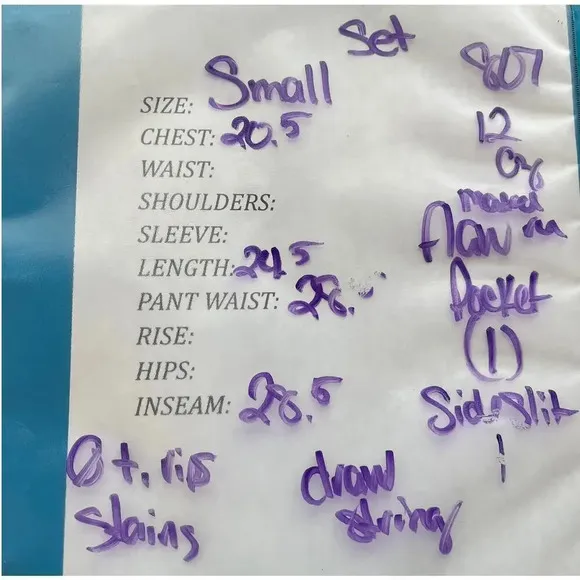 Set
SIZE: Small 807
CHEST: 20.5 12
WAIST: oz
SHOULDERS:
SLEEVE: flaw
LENGTH: 24.5
PANT WAIST: 28. Pocket
RISE: (1)
HIPS:
INSEAM: 28.5 Side slit
Ø t, rip draw 1
Stains string